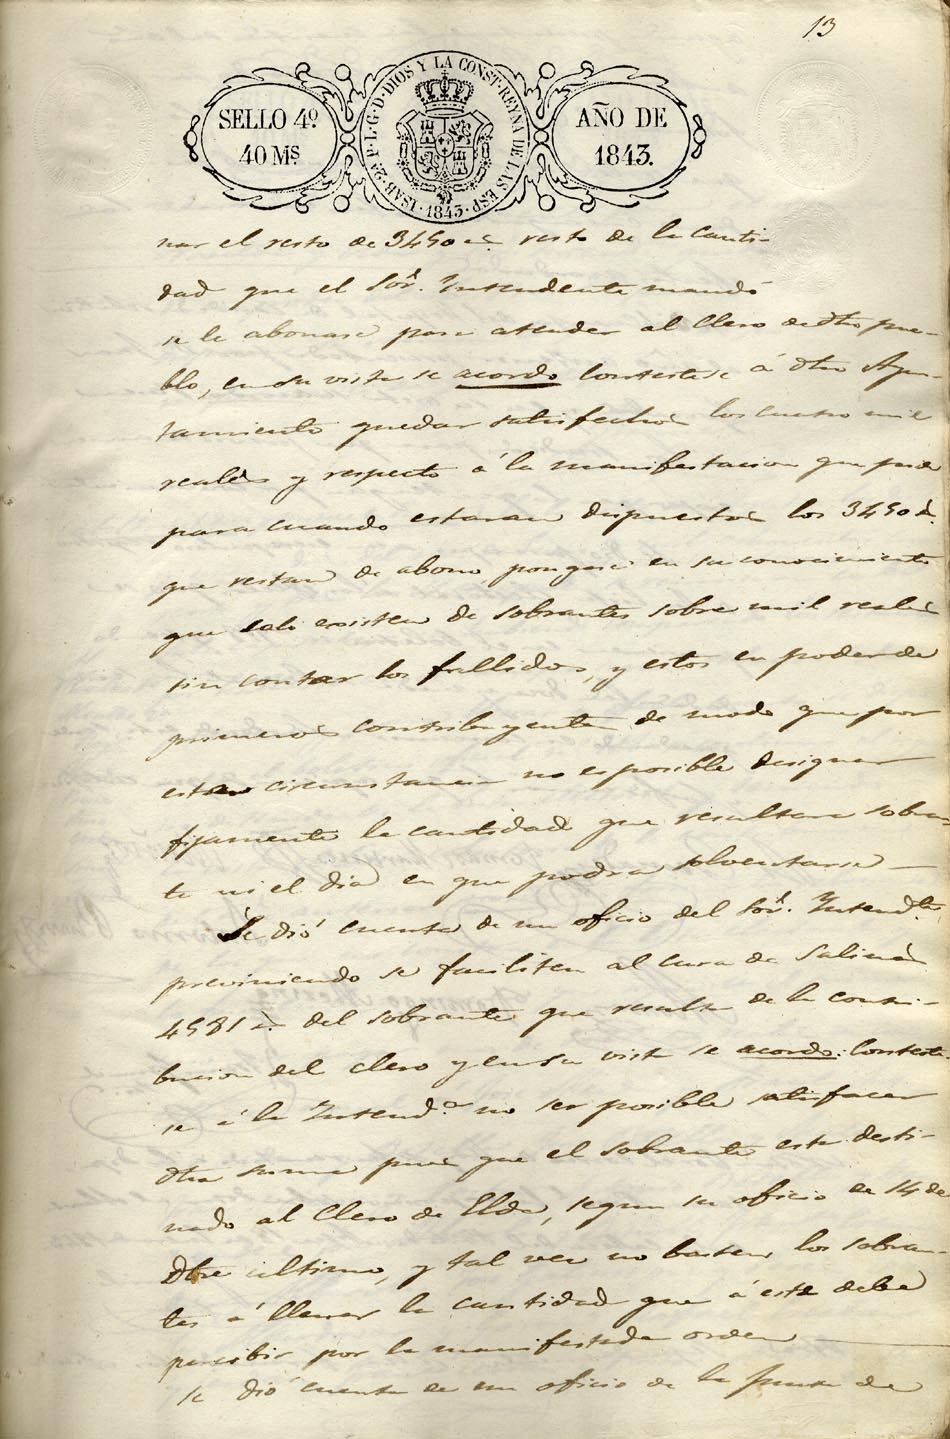 13
SELLO 4º
40 Ms
ISAB. 2ª P. L. G. D. DIOS Y LA CONST. REYNA DE LAS ESP. 1843.
AÑO DE
1843.
nar el resto de 3450 resto de la canti-
dad que el Sor. Intendente mandó
se le abonase para atender al Clero de dho pue-
blo, en su vista se acordo contestese á dho Ayun-
tamiento quedar satisfechos los cuatro mil
reales y respecto á la manifestacion que pide
para cuando estaran dispuestos los 3450 r.
que restan de abono, pongase en su conocimiento
que solo existen de sobrantes sobre mil reales
sin contar los fallidos, y estos en poder de
primeros contribuyentes de modo que por
estas circunstancias no es posible designar
fijamente la cantidad que resultara sobran-
te ni el dia en que podra solventarse
Se dió cuenta de un oficio del Sor. Intendte
previniendo se faciliten al Cura de Salinas
4581 r. del sobrante que resulte de la contri-
bucion del clero y en su vista se acordo: Conteste-
se á la Intenda no ser posible satisfacer
dha suma pues que el sobrante esta desti-
nado al Clero de Elda, segun su oficio de 14 de
Dbre ultimo, y tal vez no basten los sobran-
tes á llenar la cantidad que á este debe
percibir por la manifestada orden
se dió cuenta de un oficio de la Junta de